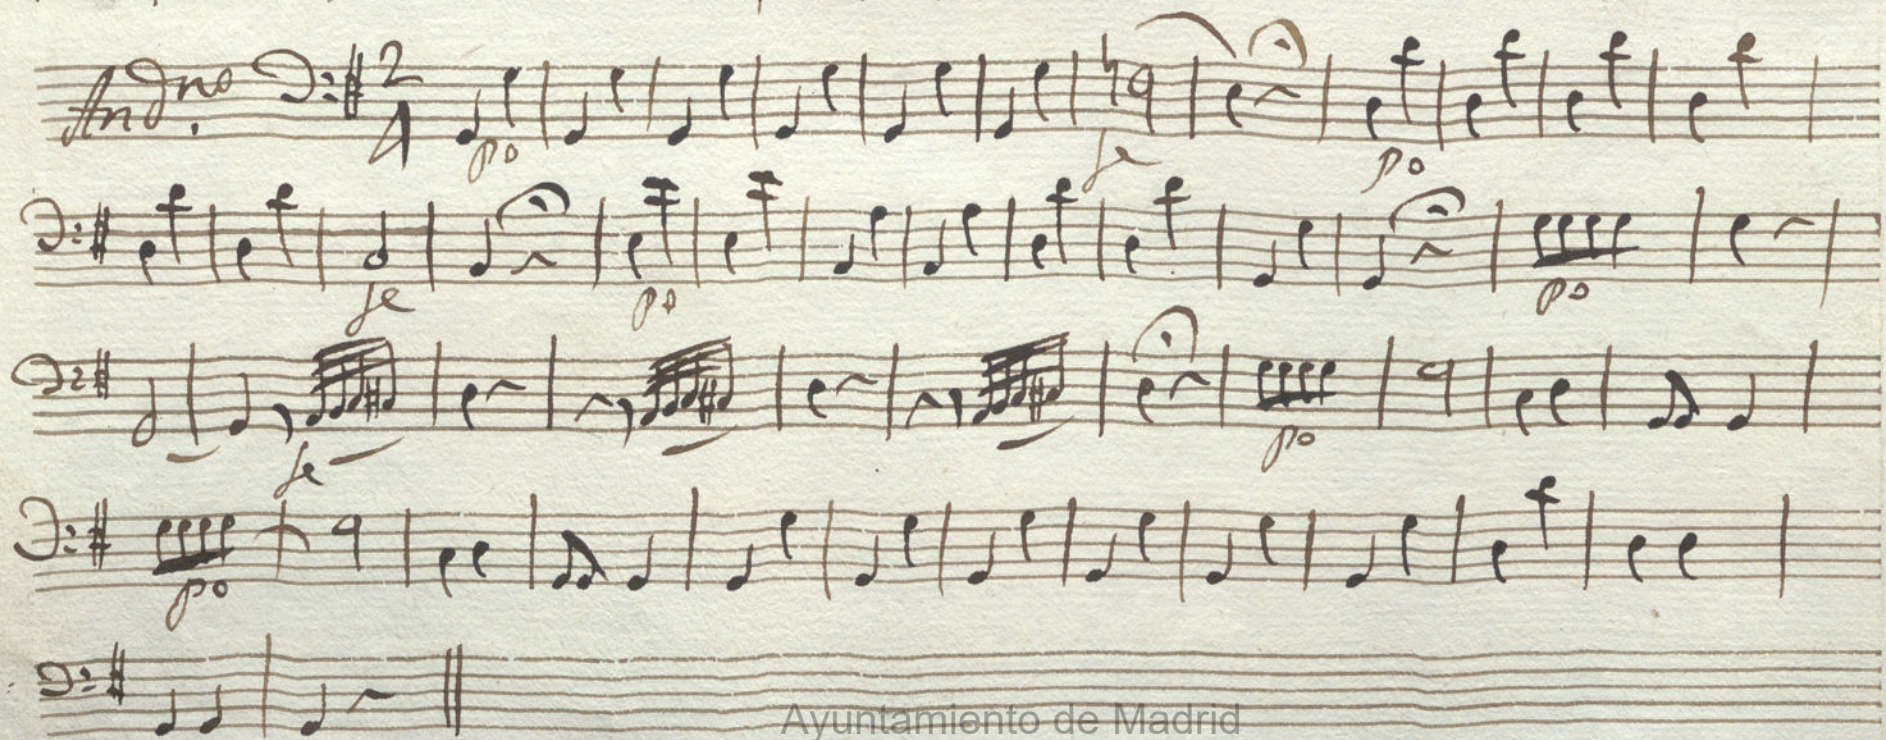 Andno. 2/4
po fe po
fe po po
fe po
po
Ayuntamiento de Madrid